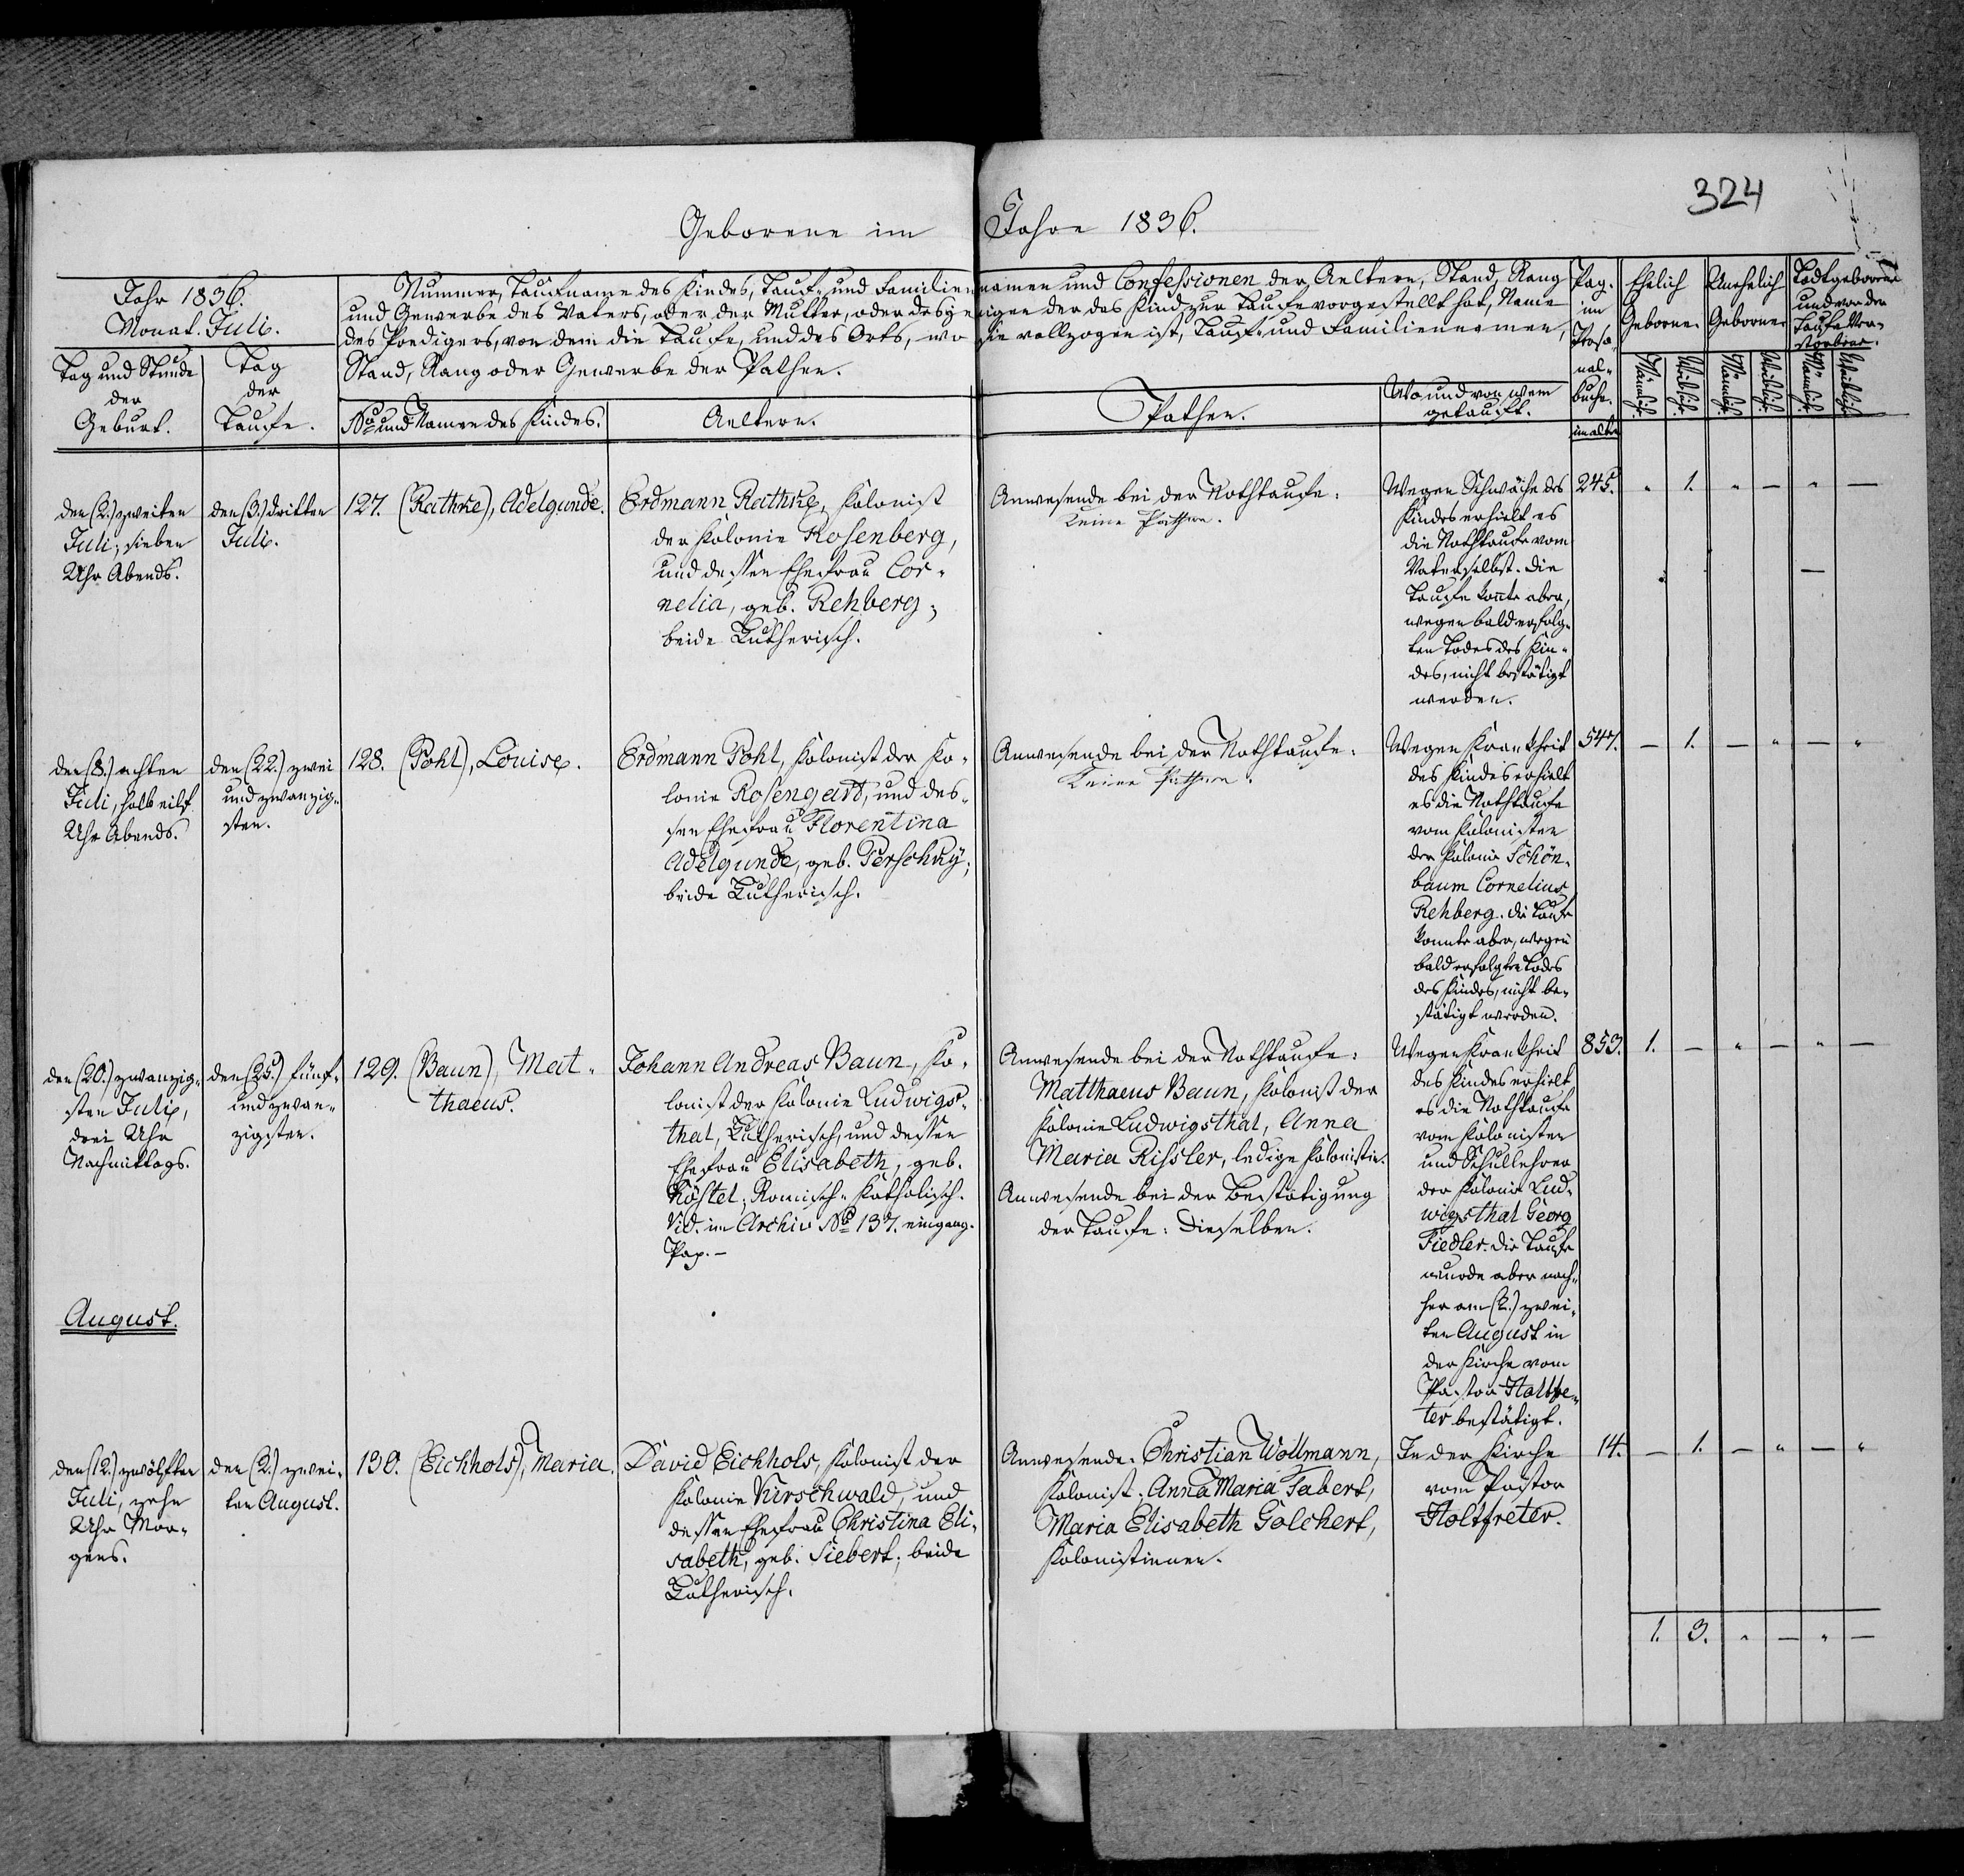 324
Geborene im Jahre 1836.
Jahr 1836.
Monat. Juli.
Tag und Stunde
der
Geburt.
Tag
der
Taufe.
Nummer, Taufname des Kindes, Tauf- und Familiennamen und Confessionen der Aeltern, Stand, Rang
und Gewerbe des Vaters, oder der Mutter, oder desjenigen der das Kind zur Taufe vorgestellt hat, Name
des Predigers, von dem die Taufe, und des Orts, wo sie vollzogen ist, Tauf- und Familiennamen,
Stand, Rang oder Gewerbe der Pathen.
No und Namen des Kindes.
Aeltern.
Pathen.
Wo und von wem
getauft.
Pag.
im
Perso-
nal-
buche.
im alten
Ehelich
Geborne.
Unehelich
Geborne
Todtgeborne
und vor der
Taufe Ver-
storbene.
Männlich.
Weiblich.
Männlich.
Weiblich.
Männlich.
Weiblich.
den (2.) zweiten
Juli, sieben
Uhr Abends.
den (3.) dritten
Juli.
127. (Rathke), Adelgunde.
Erdmann Rathke, Kolonist
der Kolonie Rosenberg,
und dessen Ehefrau Cor-
nelia, geb. Rehberg;
beide Lutherisch.
Anwesende bei der Nothtaufe:
Keine Pathen.
Wegen Schwäche des
Kindes erhielt es
die Nothtaufe vom
Vater selbst. Die
Taufe konte aber,
wegen bald erfolg-
ten Todes des Kin-
des, nicht bestätigt
werden.
245. " 1. " — " —
den (8.) achten
Juli, halb eilf
Uhr Abends.
den (22.) zwei
und zwanzig-
sten.
128. (Pohl), Louise.
Erdmann Pohl, Kolonist der Ko-
lonie Rosengart, und des-
sen Ehefrau Florentina
Adelgunde, geb. Perschky;
beide Lutherisch.
Anwesende bei der Nothtaufe:
Keine Pathen.
Wegen Krankheit
des Kindes erhielt
es die Nothtaufe
vom Kolonisten
der Kolonie Schön-
baum Cornelius
Rehberg. Die Taufe
konnte aber, wegen
bald erfolgten Todes
des Kindes, nicht be-
stätigt werden.
547. — 1. — " — "
den (20.) zwanzig-
sten Juli,
drei Uhr
Nachmittags.
den (25.) fünf-
und zwan-
zigsten.
129. (Baun), Mat-
thaeus.
Johann Andreas Baun, Ko-
lonist der Kolonie Ludwigs-
thal, Lutherisch, und dessen
Ehefrau Elisabeth, geb.
Köstel; Römisch-Katholisch.
Vid. im Archiv No 137. eingang.
Pap. —
Anwesende bei der Nothtaufe:
Matthaeus Baun, Kolonist der
Kolonie Ludwigsthal, Anna
Maria Rissler, ledige Kolonistin.
Anwesende bei der Bestätigung
der Taufe: Dieselben.
Wegen Krankheit
des Kindes erhielt
es die Nothtaufe
vom Kolonisten
und Schullehrer
der Kolonie Lud-
wigsthal Georg
Fiedler. Die Taufe
wurde aber nach-
her am (2.) zwei-
ten August in
der Kirche vom
Pastor Holtfre-
ter bestätigt.
853. 1. — " — " —
August.
den (12.) zwölften
Juli, zehn
Uhr Mor-
gens.
den (2.) zwei-
ten August.
130. (Eichhols), Maria.
David Eichhols, Kolonist der
Kolonie Kirschwald, und
dessen Ehefrau Christina Eli-
sabeth, geb. Siebert; beide
Lutherisch.
Anwesende: Christian Wollmann,
Kolonist. Anna Maria Tabert,
Maria Elisabeth Golchert,
Kolonistinnen.
In der Kirche
vom Pastor
Holtfreter.
14. — 1. — " — "
1. 3. " — " —